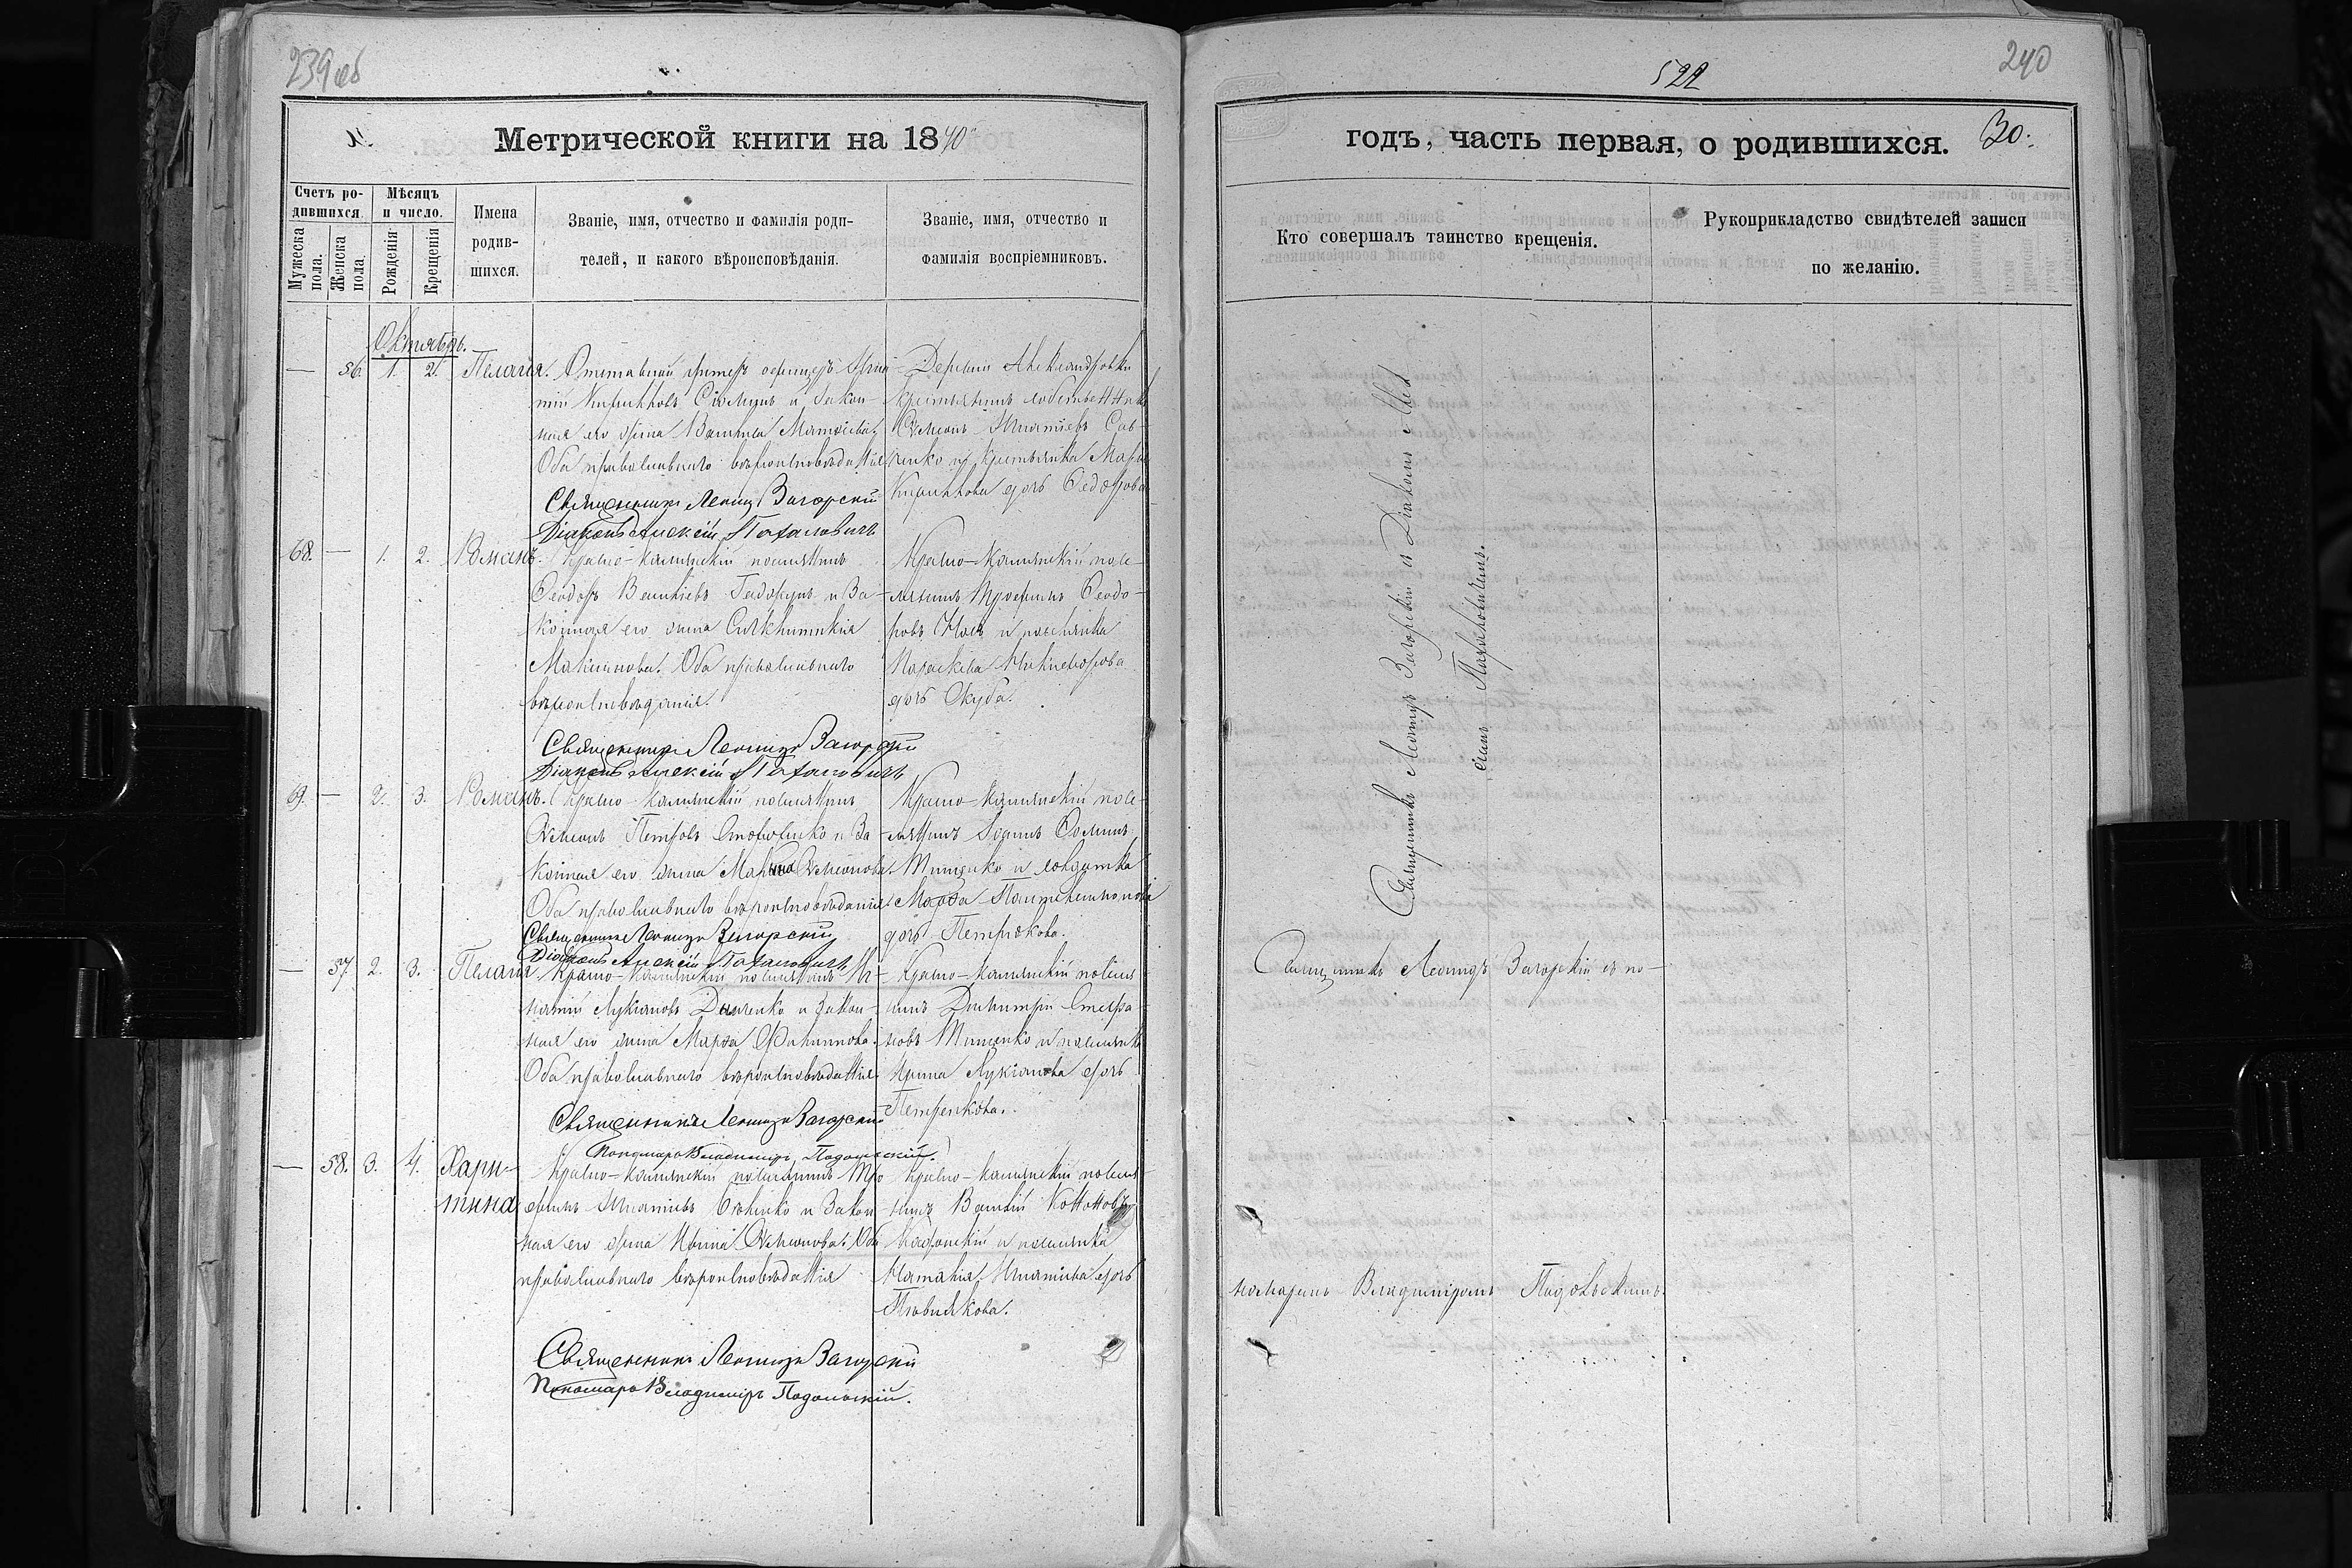 239об
Метрической книги на 1870
Счетъ ро-
дившихся.
Мѣсяцъ
и число.
Имена
родив-
шихся.
Званіе, имя, отчество и фамилія роди-
телей, и какого вѣроисповѣданія.
Званіе, имя, отчество и
фамилія воспріемниковъ.
Мужеска
пола.
Женска
пола.
Рожденія
Крещенія
Октябрь.
— 56. 1. 2. Пелагія.
Отставной офицеръ
Кирилловъ и закон-
ная его жена Матѳіева,
Оба православнаго вѣроисповѣданія
Священникъ Леонидъ Загорскій
Діаконъ Алексій Патаповичъ
Деревни Александровки
крестьянинъ собственникъ
Семеонъ Игнатіевъ Сав-
ченко и крестьянка Марія
Кириллова дочь Ѳедорова
68. — 1. 2. Романъ.
Красно-каминскій поселянинъ
Ѳеодоръ Василіевъ и за-
конная его жена Синклитикія
Максимова. Оба православнаго
вѣроисповѣданія.
Священникъ Леонидъ Загорскій
Діаконъ Алексій Патаповичъ
Красно-каминскій посе-
лянинъ Трофимъ Ѳеодо-
ровъ и поселянка
Параскева Никифорова
дочь Скуба.
69. — 2. 3. Романъ.
Красно-каминскій поселянинъ
Семеонъ Петровъ и за-
конная его жена Марина Семеонова.
Оба православнаго вѣроисповѣданія
Священникъ Леонидъ Загорскій
Діаконъ Алексій Патаповичъ
Красно-каминскій посе-
лянинъ Іоаннъ Ѳоминъ
Тищенко и солдатка
Марѳа Пантелеимонова
дочь Петрякова.
— 57. 2. 3. Пелагія
Красно-каминскій поселянинъ Иг-
натій Лукіановъ Данченко и закон-
ная его жена Марѳа Филиппова.
Оба православнаго вѣроисповѣданія.
Священникъ Леонидъ Загорскій
Пономарь Владиміръ Подольскій.
Красно-каминскій поселя-
нинъ Димитрій Стефа-
новъ Тищенко и поселянка
Ирина Лукіанова дочь
Петренкова.
— 58. 3. 4. Хари-
тина
Красно-каминскій поселянинъ Тро-
фимъ Игнатіевъ и закон-
ная его жена Ирина Семеонова. Оба
православнаго вѣроисповѣданія
Священникъ Леонидъ Загорскій
Пономарь Владиміръ Подольскій.
Красно-каминскій поселя-
нинъ Василій Кононовъ
и поселянка
Наталія Игнатіева дочь
522
240
годъ, часть первая, о родившихся. 30.
Кто совершалъ таинство крещенія.
Рукоприкладство свидѣтелей записи
по желанію.
Священникъ Леонидъ Загорскій съ Діакономъ Алек-
сіемъ Патаповичемъ.
Священникъ Леонидъ Загорскій съ по-
номаремъ Владиміромъ Подольскимъ.